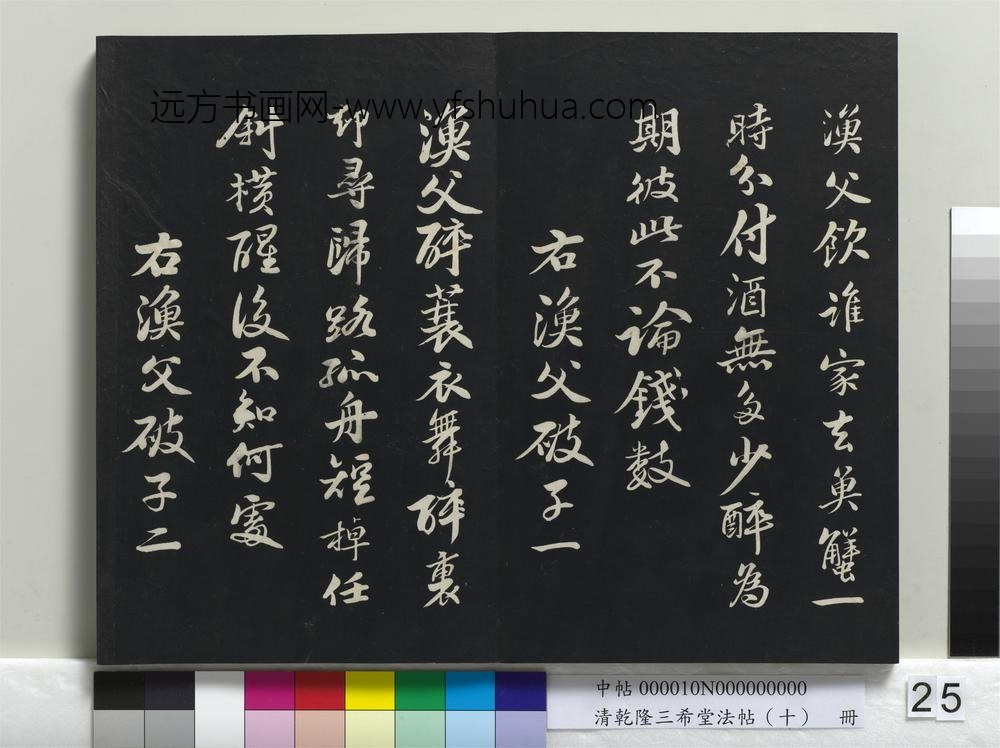 漁父飲誰家去魚蟹一
時分付酒無多少醉為
期彼此不論錢數
右漁父破子一
漁父醉蓑衣舞醉裏
却尋歸路孤舟短棹任
斜横醒後不知何處
右漁父破子二
远方书画网-www.yfshuhua.com
中帖 000010N000000000
清乾隆三希堂法帖（十） 冊
25